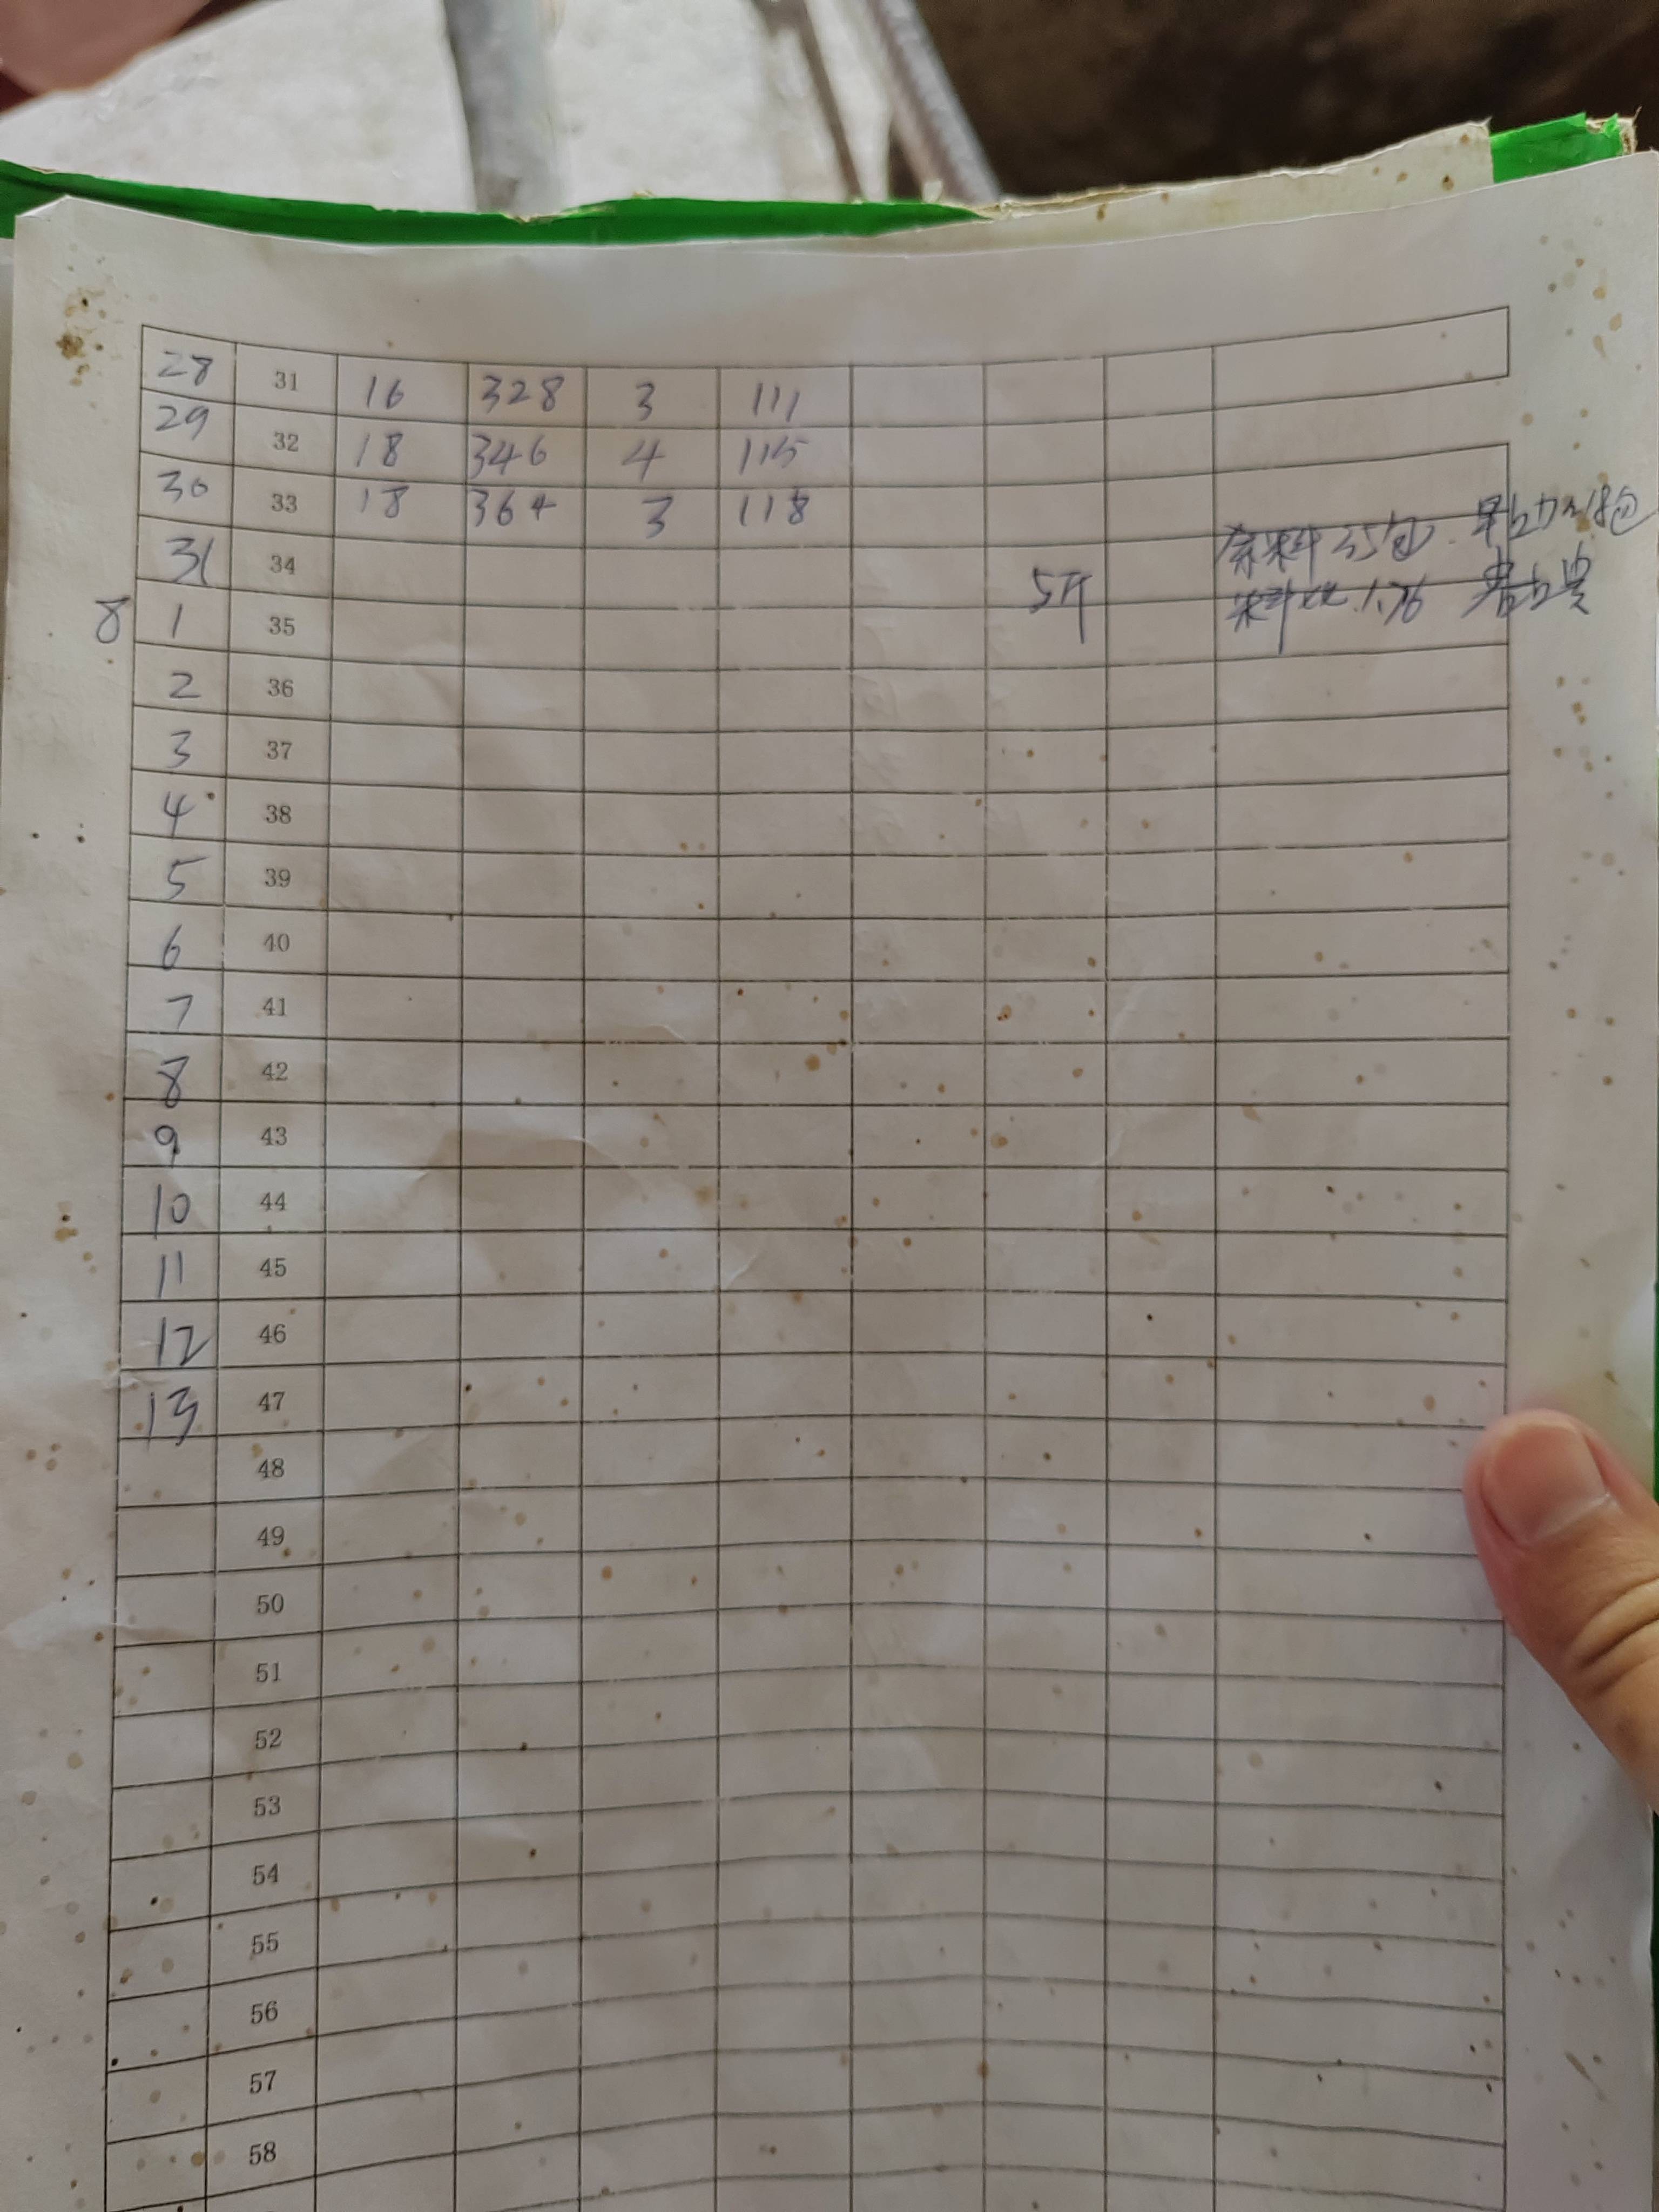 28 31 16 328 3 111
29 32 18 346 4 115
30 33 18 364 3 118
31 34
余料 35包
8 1 35 5斤
料比 1.76
2 36
3 37
4 38
5 39
6 40
7 41
8 42
9 43
10 44
11 45
12 46
13 47
48
49
50
51
52
53
54
55
56
57
58